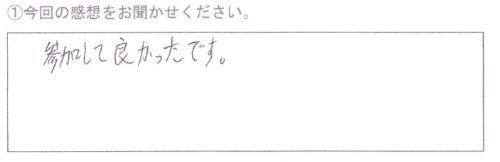 ①今回の感想をお聞かせください。
参加して良かったです。